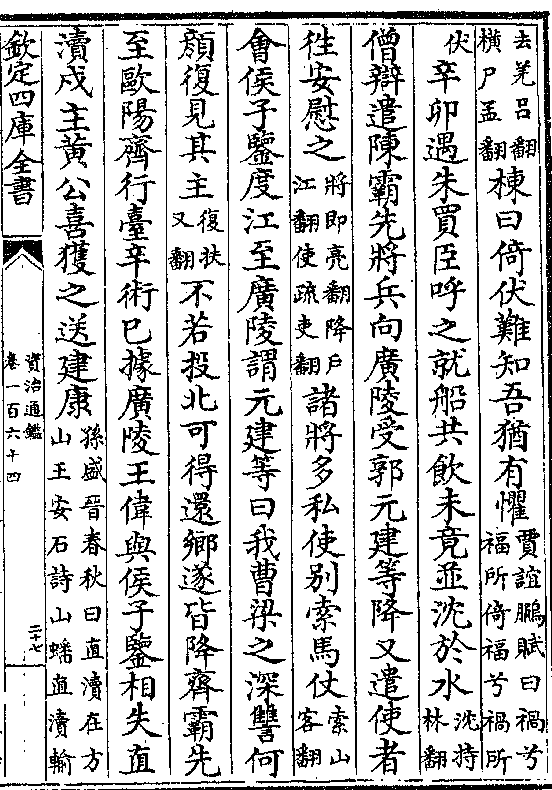 去羌呂翻
横戸孟翻
棟曰倚伏難知吾猶有懼
賈誼鵩賦曰禍兮
福所倚福兮禍所
伏
辛卯遇朱買臣呼之就船共飲未竟並沈於水
沈持
林翻
僧辯遣陳霸先將兵向廣陵受郭元建等降又遣使者
徃安慰之
將即亮翻降戶
江翻使疏吏翻
諸將多私使别索馬仗
索山
客翻
會侯子鑒度江至廣陵謂元建等曰我曹梁之深讐何
顔復見其主
復扶
又翻
不若投北可得還鄉遂皆降齊霸先
至歐陽齊行臺辛術已據廣陵王偉與侯子鑒相失直
瀆戍主黄公喜獲之送建康
孫盛晉春秋曰直瀆在方
山王安石詩山蟠直瀆輸
欽定四庫全書
資治通鑑
卷一百六十四
二十七